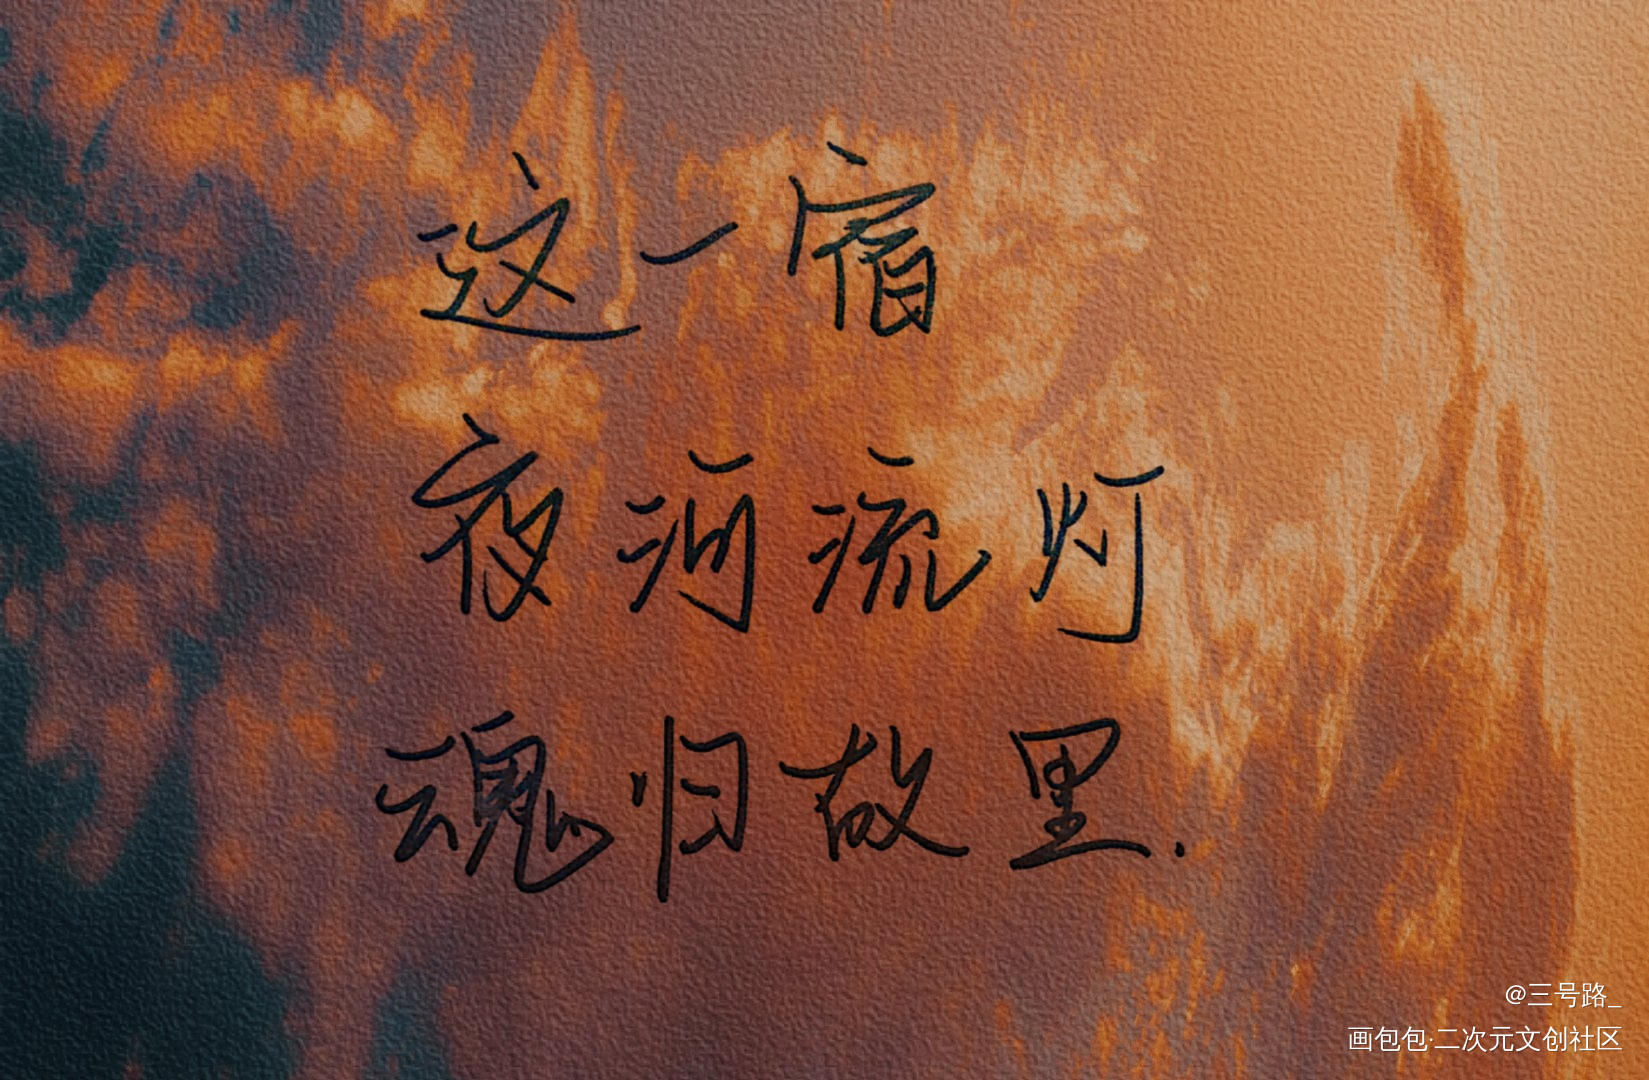 这一宿
夜河流灯
魂归故里.
@三号路_
画包包·二次元文创社区